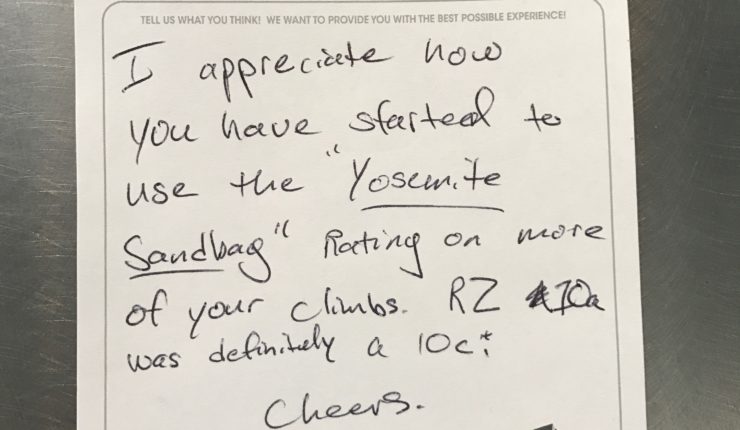 TELL US WHAT YOU THINK! WE WANT TO PROVIDE YOU WITH THE BEST POSSIBLE EXPERIENCE!
I appreciate how
you have started to
use the "Yosemite
Sandbag" Rating on more
of your climbs. RZ 10a
was definitely a 10c!
Cheers.